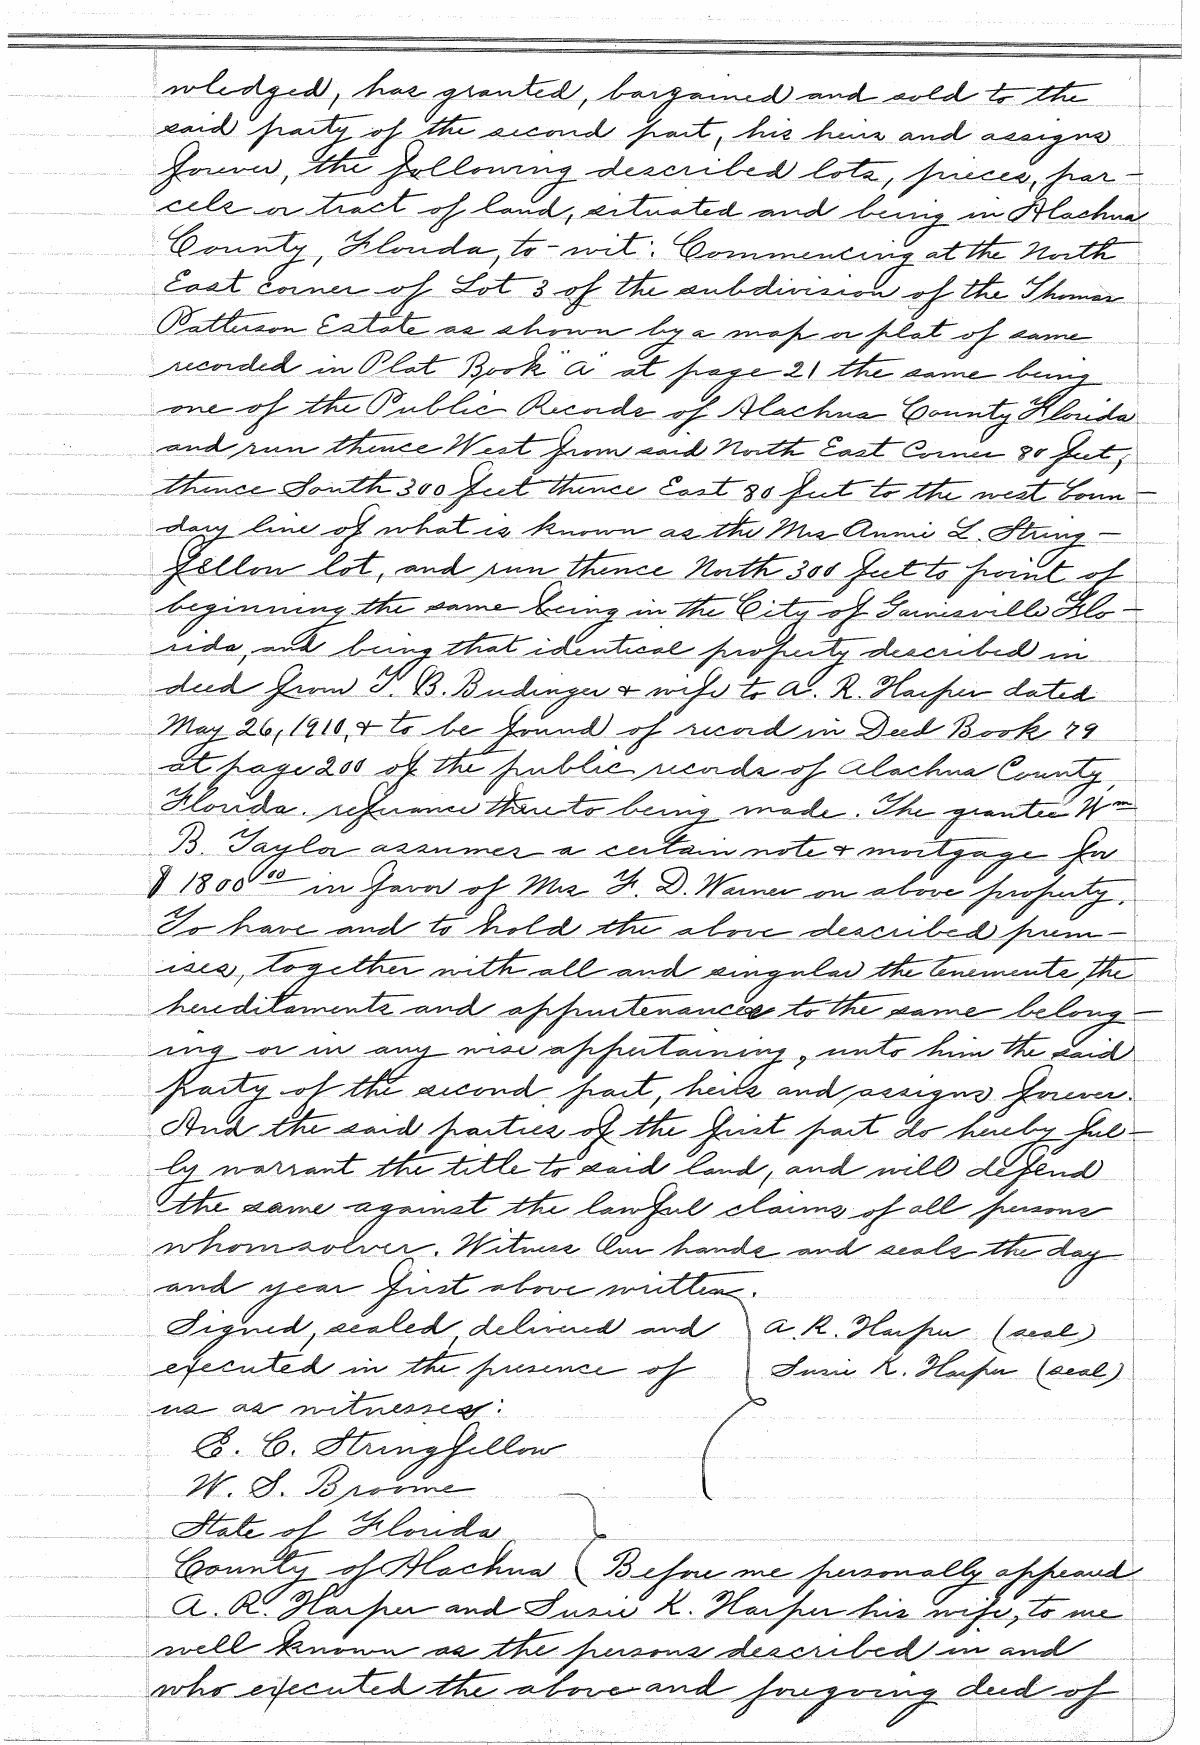 wledged, has granted, bargained and sold to the
said party of the second part, his heirs and assigns
forever, the following described lots, pieces, par-
cels or tract of land, situated and being in Alachua
County, Florida, to-wit: Commencing at the North
East corner of Lot 3 of the subdivision of the Thomas
Patterson Estate as shown by a map or plat of same
recorded in Plat Book "A" at page 21 the same being
one of the Public Records of Alachua County Florida
and run thence West from said North East Corner 80 feet,
thence South 300 feet thence East 80 feet to the west boun-
dary line of what is known as the Mrs Annie L. String-
fellow lot, and run thence North 300 feet to point of
beginning the same being in the City of Gainesville Flo-
rida, and being that identical property described in
deed from T. B. Budinger & wife to A. R. Harper dated
May 26, 1910, & to be found of record in Deed Book 79
at page 200 of the public records of Alachua County,
Florida. referance thereto being made. The grantee Wm
B. Taylor assumes a certain note & mortgage for
$1800 00 in favor of Mrs F. D. Warner on above property.
To have and to hold the above described prem-
ises, together with all and singular the tenements, the
hereditaments and appurtenances to the same belong-
ing or in any wise appertaining, unto him the said
party of the second part, heirs and assigns forever.
And the said parties of the first part do hereby ful-
ly warrant the title to said land, and will defend
the same against the lawful claims of all persons
whomsolver. Witness Our hands and seals the day
and year first above written.
Signed, sealed, delivered and A. R. Harper (seal)
executed in the presence of Susie K. Harper (seal)
us as witnesses:
E. C. Stringfellow
W. S. Broome
State of Florida
County of Alachua Before me personally appeared
A. R. Harper and Susie K. Harper his wife, to me
well known as the persons described in and
who executed the above and foregoing deed of